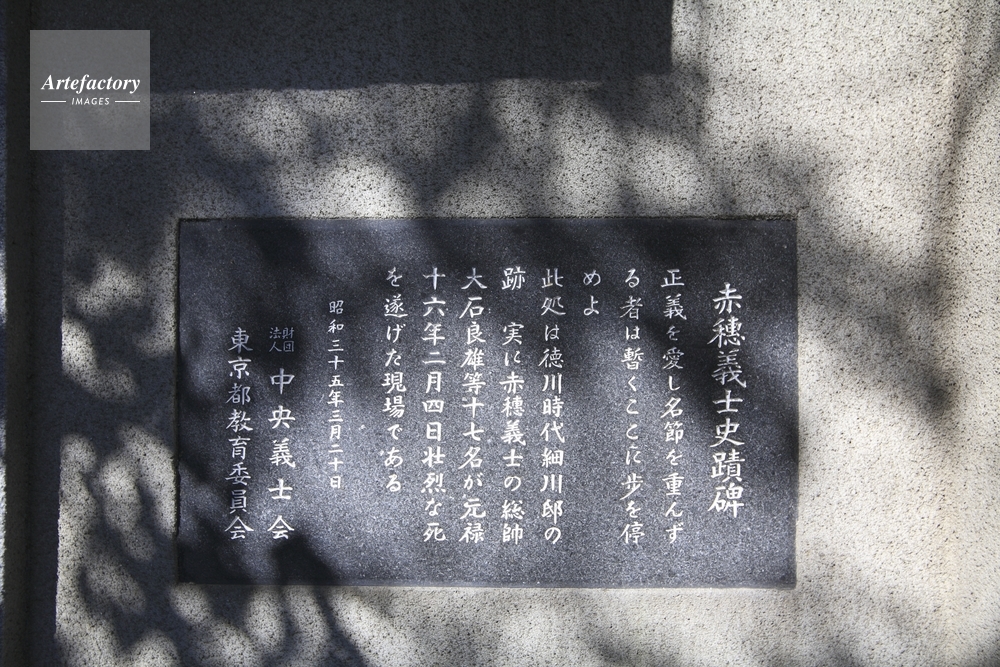 Artefactory
IMAGES
赤穂義士史蹟碑
正義を愛し名節を重んず
る者は暫くここに歩を停
めよ
此処は徳川時代細川邸の
跡 実に赤穂義士の総帥
大石良雄等十七名が元禄
十六年二月四日壮烈な死
を遂げた現場である
昭和三十五年三月二十日
財団法人 中央義士会
東京都教育委員会